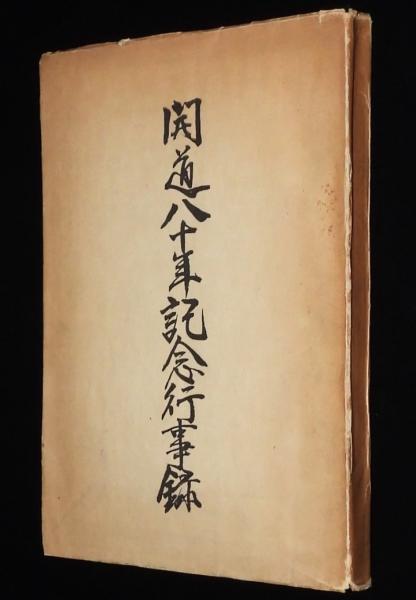 開道八十年記念行事録